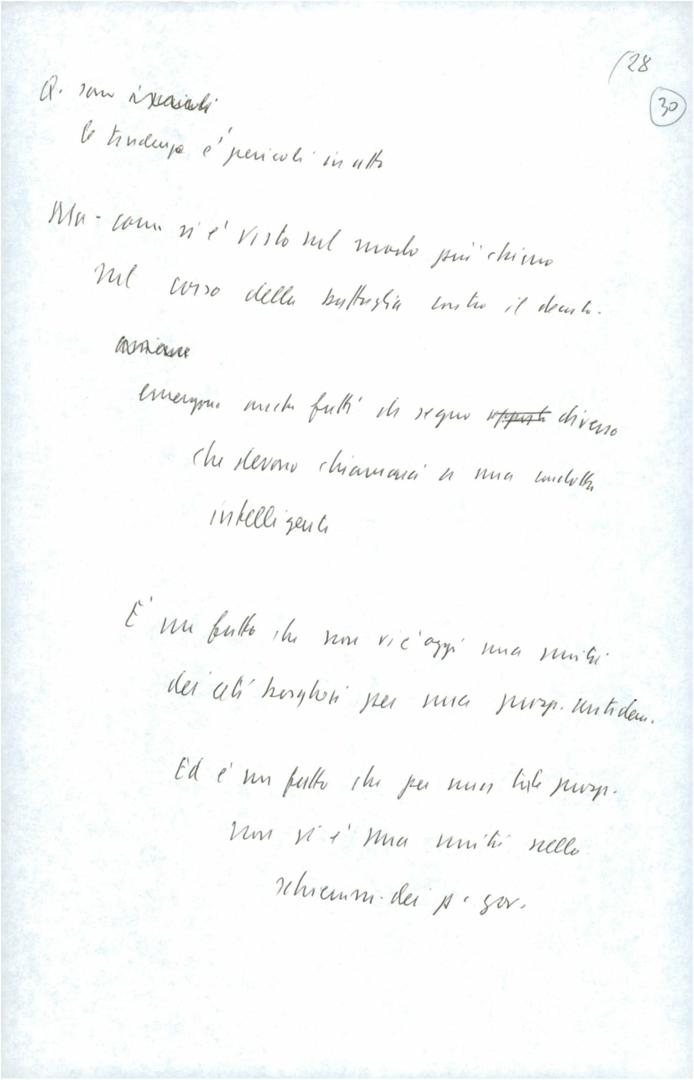 28
30
Q. sono i
le tendenze e i pericoli in atto
Ma - come si è visto nel modo più chiaro
nel corso della battaglia contro il decreto -
emergono anche fatti di segno opposto diverso
che devono chiamarci a una condotta
intelligente
E' un fatto che non vi è oggi una unità
dei ceti borghesi per una prosp. antidem.
Ed è un fatto che per una tale prosp.
non vi è una unità nello
schieram. dei p. gov.